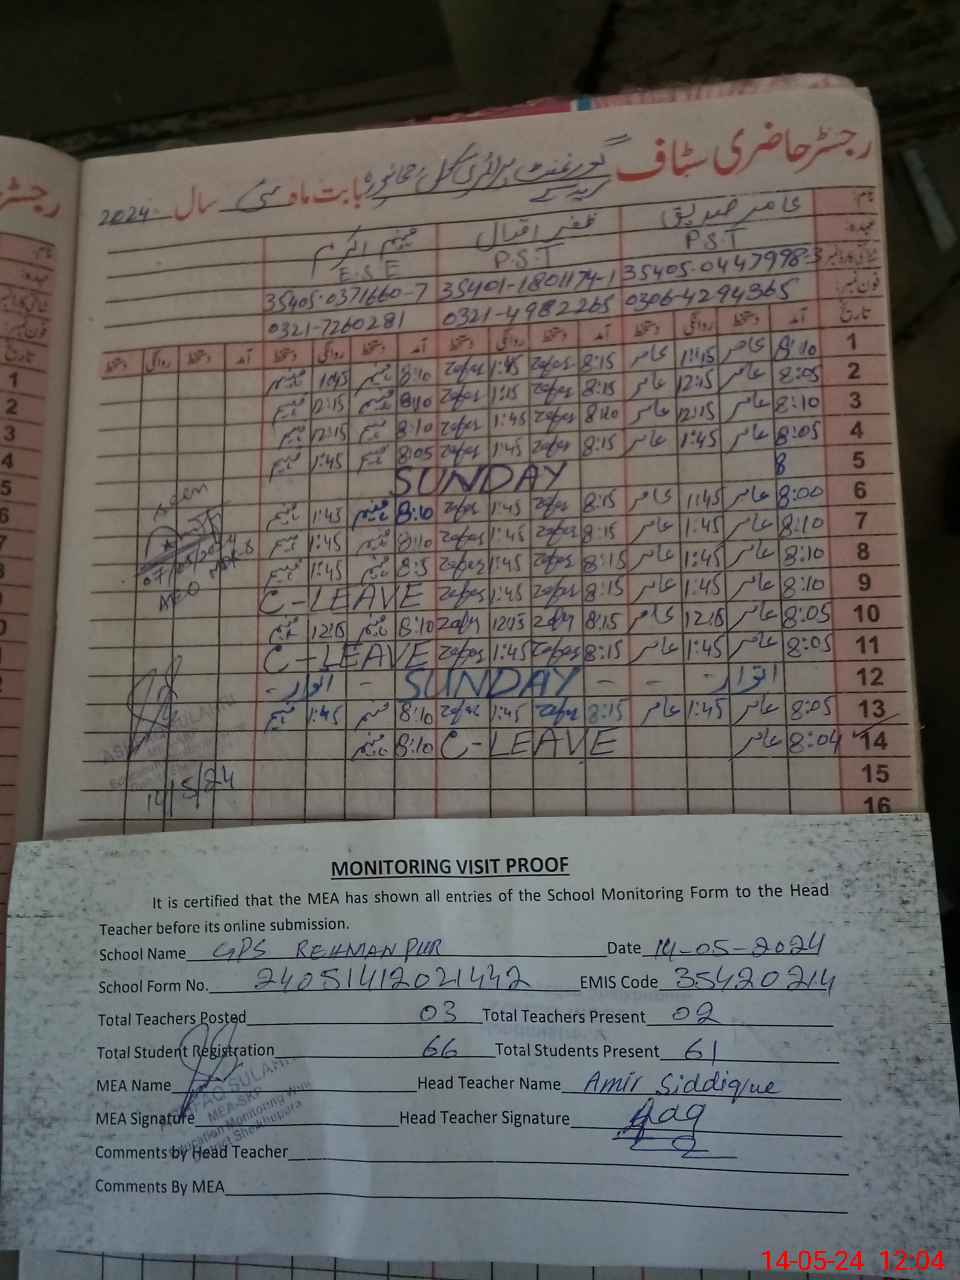 رجسٹر حاضری سٹاف گورنمنٹ پرائمری سکول بابت ماہ مئی سال 2024
عامر صدیق ظفر اقبال اکرم
P.S.T P.S.T E.S.E
35405-0447998-3 35401-1801174-1 35405-0371660-7
0306-4294365 0321-4982265 0321-7260281
تاریخ آمد دستخط روانگی دستخط آمد دستخط روانگی دستخط آمد دستخط روانگی دستخط آمد دستخط روانگی دستخط
1 8:10 عامر 11:15 عامر 8:15 Zafar 1:45 Zafar 8:10 1:45
2 8:05 عامر 12:15 عامر 8:15 Zafar 1:15 Zafar 8:10 12:15
3 8:10 عامر 12:15 عامر 8:10 Zafar 1:45 Zafar 8:10 12:15
4 8:05 عامر 1:45 عامر 8:15 Zafar 1:45 Zafar 8:05 1:45
5 8 SUNDAY
6 8:00 عامر 1:45 عامر 8:15 Zafar 1:45 Zafar 8:10 1:45
7 8:10 عامر 1:45 عامر 8:15 Zafar 1:45 Zafar 8:10 1:45
8 8:10 عامر 1:45 عامر 8:15 Zafar 1:45 Zafar 8:5 1:45
9 8:10 عامر 1:45 عامر 8:15 Zafar 1:45 Zafar C-LEAVE
10 8:05 عامر 12:15 عامر 8:15 Zafar Zafar 8:10 12:15
11 8:05 عامر 1:45 عامر 8:15 Zafar 1:45 Zafar C-LEAVE
12 اتوار - - - SUNDAY - اتوار -
13 8:05 عامر 1:45 عامر 8:15 Zafar 1:45 Zafar 8:10 1:45
14 8:04 عامر C-LEAVE 8:10
15
16
Seen
07/05/2024
AEO
14/5/24
MONITORING VISIT PROOF
It is certified that the MEA has shown all entries of the School Monitoring Form to the Head
Teacher before its online submission.
School Name GPS REHMANPUR Date 14-05-2024
School Form No. 24051412021442 EMIS Code 35420214
Total Teachers Posted 03 Total Teachers Present 02
Total Student Registration 66 Total Students Present 61
MEA Name Head Teacher Name Amir Siddique
MEA Signature Head Teacher Signature
MEA-SKP
Education Monitoring Wing
District Sheikhupura
Comments by Head Teacher
Comments By MEA
14-05-24 12:04